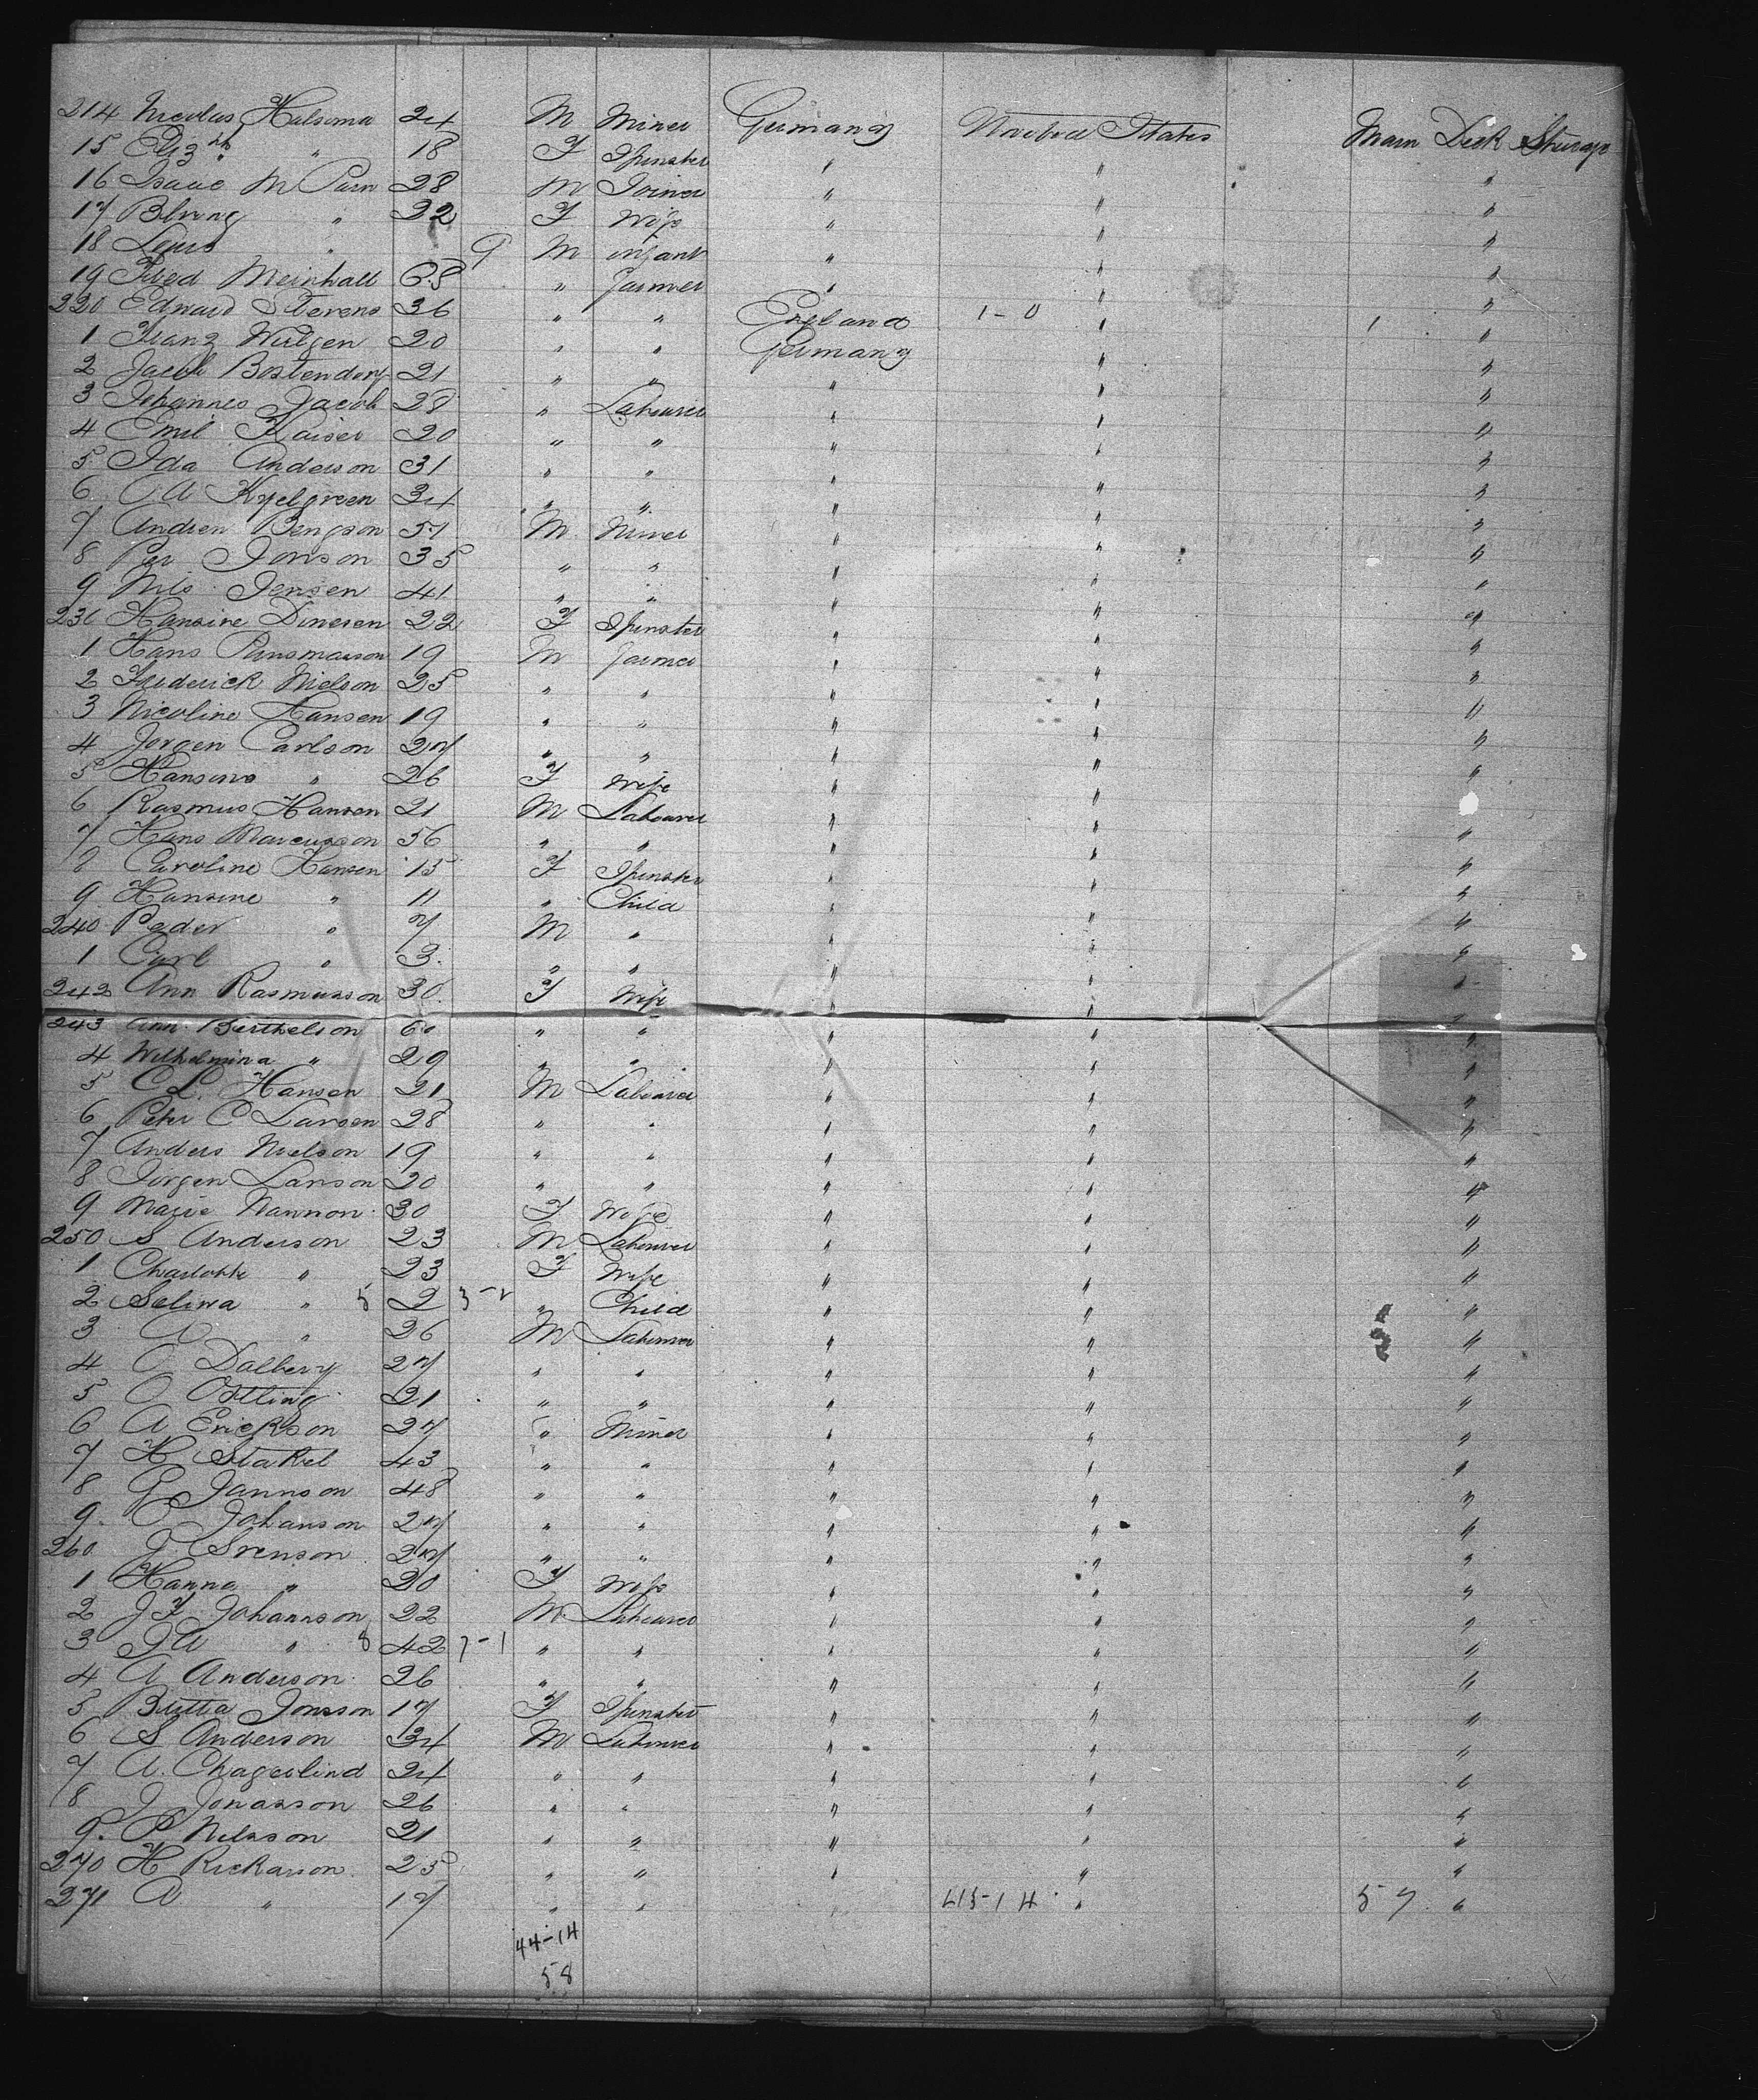 214 Nicolas Halsema 24 M Miner Germany United States Main Deck Steerage
15 Elizth " 18 F Spinster " " "
16 Isaac M Parn 28 M Joiner " " "
17 " 22 F Wife " " "
18 Louis " 9 M infant " " "
19 Fred Meinhall 68 " Farmer " " "
220 Edward Stevens 36 " " England 1-0 " 1 "
1 Franz Wulgen 20 " " Germany " "
2 Jacob Bostendorf 21 " " " " "
3 Johannes Jacob 28 " Labourer " " "
4 Emil Kaiser 20 " " " " "
5 Ida Anderson 31 " " " " "
6 C A Kyelgreen 34 " " " " "
7 Andrew Bengson 51 M Miner " " "
8 Per Jonson 35 " " " " "
9 Nils Jensen 41 " " " " "
230 Hansine Dinesen 22 F Spinster " " "
1 Hans 19 M Farmer " " "
2 Frederick Nielson 25 " " " " "
3 Nicoline Hansen 19 " " " " "
4 Jorgen Carlson 27 " " " " "
5 Hansine " 26 F Wife " " "
6 Rasmus Hansen 21 M Labourer " "
7 Hans Marcusson 56 " " " " "
8 Caroline Hansen 15 F Spinster " " "
9 Hansine " 11 " Child " " "
240 Peder " 7 M " " " "
1 Carl " 3 " " " " "
242 Ann Rasmusson 30 F Wife " " "
243 Ann Berthelson 60 " " " " "
4 Wilhelmina " 29 " " " " "
5 C L Hansen 21 M Labourer " " "
6 Peter C Larson 28 " " " " "
7 Anders Nielson 19 " " " " "
8 Jorgen Larson 20 " " " " "
9 Marie Nannon 30 F Wife " " "
250 S Anderson 23 M Labourer " " "
1 Charlotte " 23 F Wife " " "
2 Selina " 5 2 3-2 " Child " " "
3 A " 26 M Labourer " " "
4 O Dalbery 27 " " " " "
5 O Ostling 21 " " " " "
6 A Erickson 27 " Miner " " "
7 H Stakel 43 " " " " "
8 G Jannson 48 " " " " "
9 C Johanson 27 " " " " "
260 J Svenson 27 " " " " "
1 Hanna " 20 F Wife " " "
2 J F Johannson 22 M Labourer " " "
3 J A " 8 42 7-1 " " " " "
4 A Anderson 26 " " " " "
5 Britta Jonsson 17 F Spinster " " "
6 S Anderson 34 M Labourer " " "
7 A. Chagerlind 24 " " " " "
8 J Jonasson 26 " " " " "
9 P Nilsson 21 " " " " "
270 H Rickarson 25 " " " " "
271 A " 17 " " " 43-14 " 57 "
44-14
58